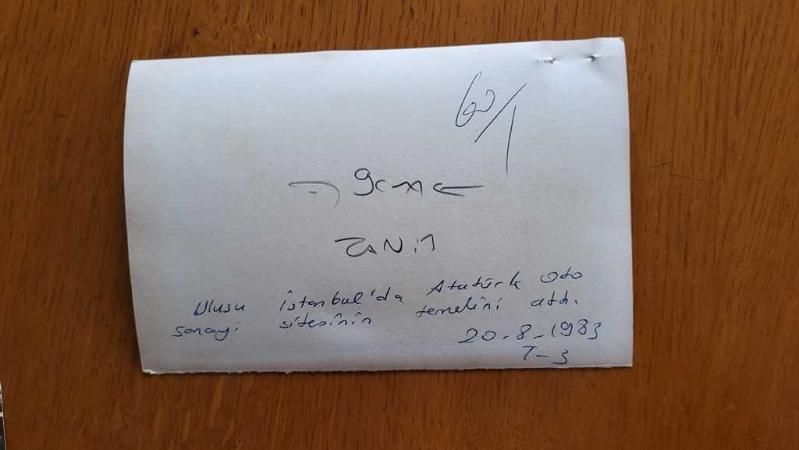 60/1
Ulusu İstanbul'da Atatürk Oto
sanayi sitesinin temelini attı.
20.8.1983
T-3